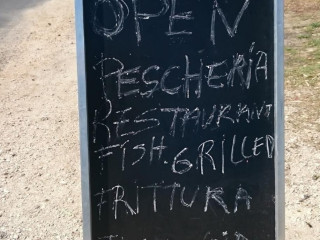 OPEN
PESCHERIA
RESTAURANT
FISH. GRILLED
FRITTURA